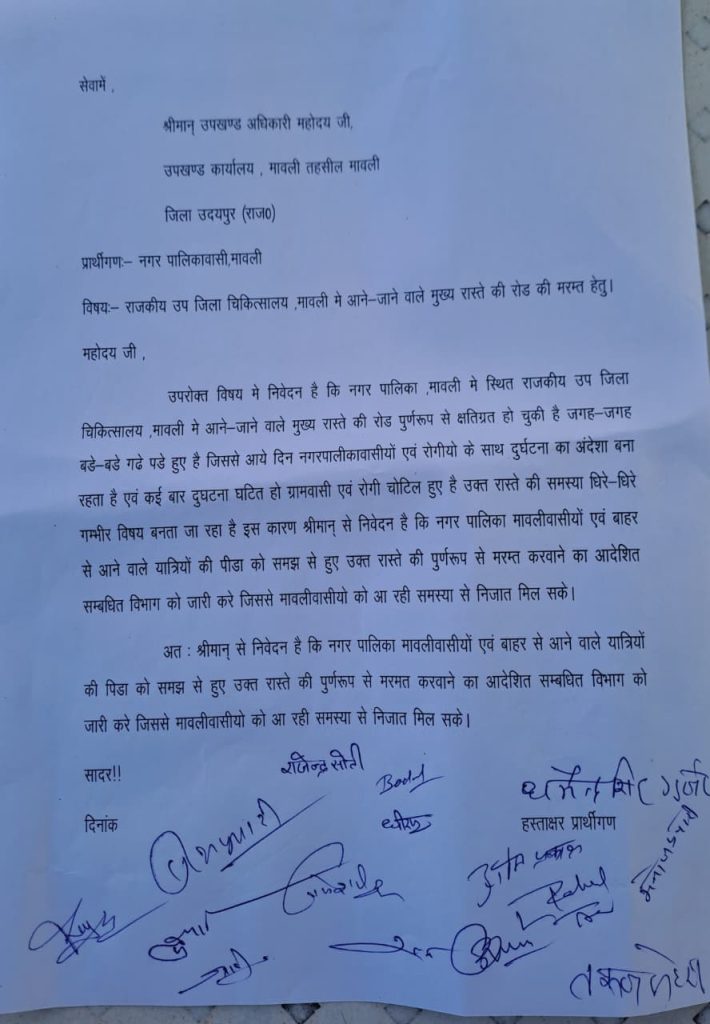 सेवामें ,
श्रीमान् उपखण्ड अधिकारी महोदय जी,
उपखण्ड कार्यालय , मावली तहसील मावली
जिला उदयपुर (राज0)
प्रार्थीगणः– नगर पालिकावासी,मावली
विषयः– राजकीय उप जिला चिकित्सालय ,मावली मे आने–जाने वाले मुख्य रास्ते की रोड की मरम्त हेतु।
महोदय जी ,
उपरोक्त विषय मे निवेदन है कि नगर पालिका ,मावली मे स्थित राजकीय उप जिला
चिकित्सालय ,मावली मे आने–जाने वाले मुख्य रास्ते की रोड पुर्णरूप से क्षतिग्रत हो चुकी है जगह–जगह
बडे–बडे गढे पडे हुए है जिससे आये दिन नगरपालीकावासीयों एवं रोगीयो के साथ दुर्घटना का अंदेशा बना
रहता है एवं कई बार दुघटना घटित हो ग्रामवासी एवं रोगी चोटिल हुए है उक्त रास्ते की समस्या धिरे–धिरे
गम्भीर विषय बनता जा रहा है इस कारण श्रीमान् से निवेदन है कि नगर पालिका मावलीवासीयों एवं बाहर
से आने वाले यात्रियों की पीडा को समझ से हुए उक्त रास्ते की पुर्णरूप से मरम्त करवाने का आदेशित
सम्बधित विभाग को जारी करे जिससे मावलीवासीयो को आ रही समस्या से निजात मिल सके।
अत : श्रीमान् से निवेदन है कि नगर पालिका मावलीवासीयों एवं बाहर से आने वाले यात्रियों
की पिडा को समझ से हुए उक्त रास्ते की पुर्णरूप से मरमत करवाने का आदेशित सम्बधित विभाग को
जारी करे जिससे मावलीवासीयो को आ रही समस्या से निजात मिल सके।
सादर!!
दिनांक
हस्ताक्षर प्रार्थीगण